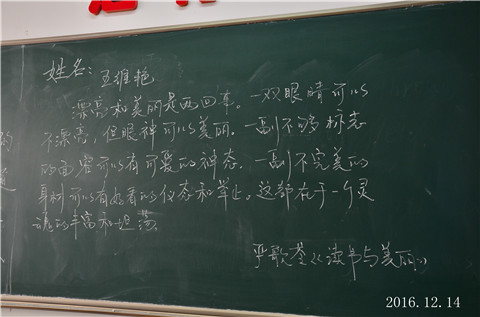 姓名:王雅艳
漂亮和美丽是两回事。一双眼睛可以
不漂亮,但眼神可以美丽。一副不够标志
的面容可以有可爱的神态,一副不完美的
身材可以有好看的仪态和举止。这都在于一个灵
魂的丰富和坦荡
严歌苓《读书与美丽》
2016.12.14